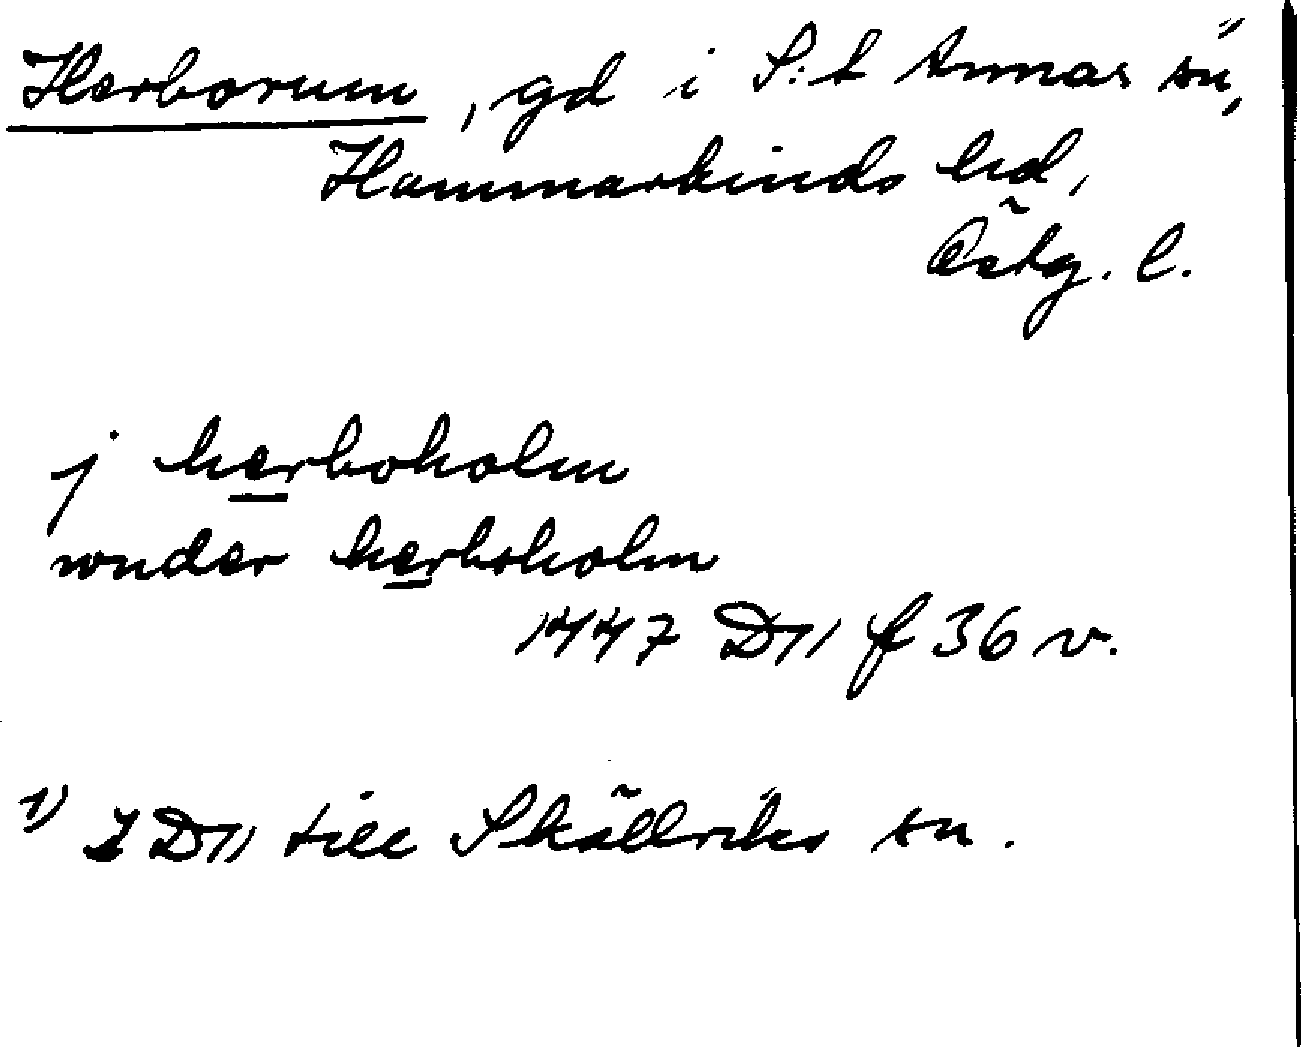 Herborum, gd i S:t Annas sn,¹⁾
Hammarkinds hd,
Östg. l.
j herboholm
wnder herboholm
1447 D11 f 36 v.
1) I D11 till Skällviks sn.